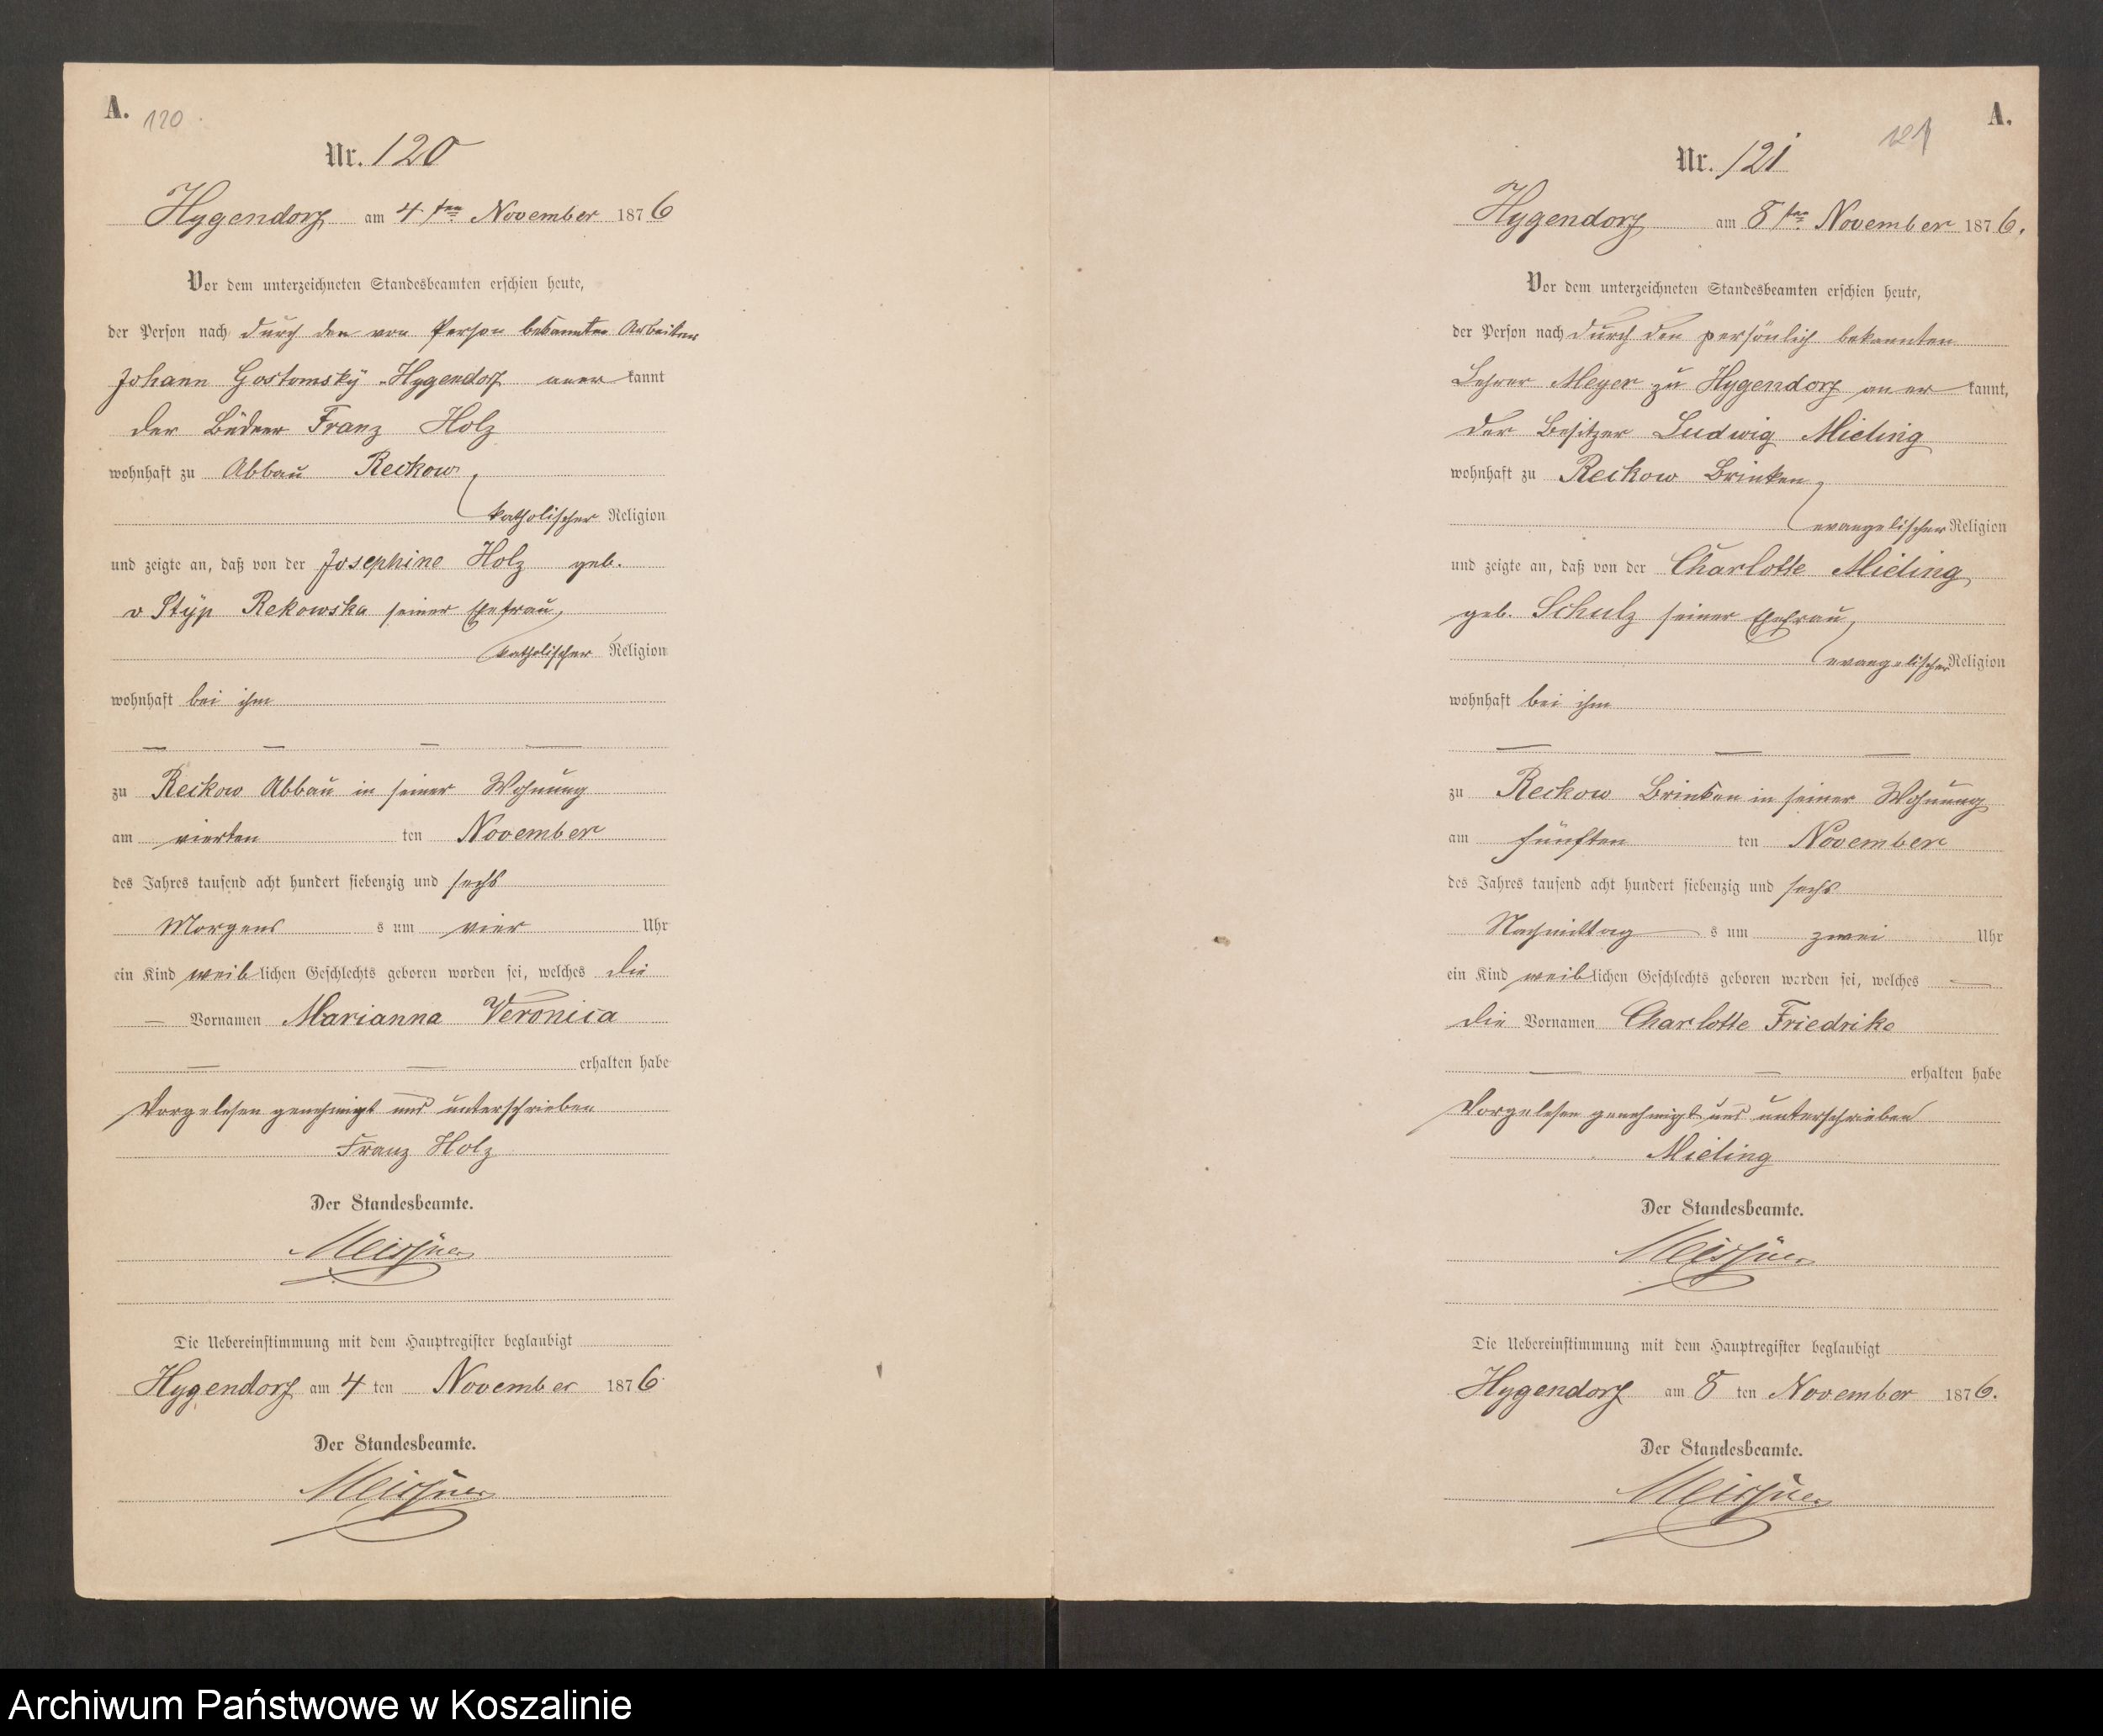 A. 120.
Nr. 120
Hygendorf am 4ten November 1876
Vor dem unterzeichneten Standesbeamten erschien heute,
der Person nach durch den von Person bekannten Arbeiter
Johann Gostomský Hygendorf aner kannt
der Büdner Franz Holz
wohnhaft zu Abbau Reckow,
katholischer Religion
und zeigte an, daß von der Josephine Holz geb.
v Styp Rekowska seiner Ehefrau,
katholischer Religion
wohnhaft bei ihm
— — — —
zu Reckow Abbau in seiner Wohnung
am vierten ten November
des Jahres tausend acht hundert siebenzig und sechs
Morgens s um vier Uhr
ein Kind weiblichen Geschlechts geboren worden sei, welches die
— Vornamen Marianna Veronica
— — erhalten habe
Vorgelesen genehmigt und unterschrieben
Franz Holz
Der Standesbeamte.
Meissner
Die Uebereinstimmung mit dem Hauptregister beglaubigt
Hygendorf am 4 ten November 1876
Der Standesbeamte.
Meissner
121 A.
Nr. 121
Hygendorf am 8ten November 1876.
Vor dem unterzeichneten Standesbeamten erschien heute,
der Person nach durch den persönlich bekannten
Lehrer Meyer zu Hygendorf aner kannt,
der Besitzer Ludwig Mieling
wohnhaft zu Reckow Brinken,
evangelischer Religion
und zeigte an, daß von der Charlotte Mieling
geb. Schulz seiner Ehefrau,
evangelischer Religion
wohnhaft bei ihm
— — —
zu Reckow Brinken in seiner Wohnung
am fünften ten November
des Jahres tausend acht hundert siebenzig und sechs
Nachmittag s um zwei Uhr
ein Kind weiblichen Geschlechts geboren worden sei, welches —
die Vornamen Charlotte Friedrike
— — erhalten habe
Vorgelesen genehmigt und unterschrieben
Mieling
Der Standesbeamte.
Meissner
Die Uebereinstimmung mit dem Hauptregister beglaubigt
Hygendorf am 8 ten November 1876.
Der Standesbeamte.
Meissner
Archiwum Państwowe w Koszalinie